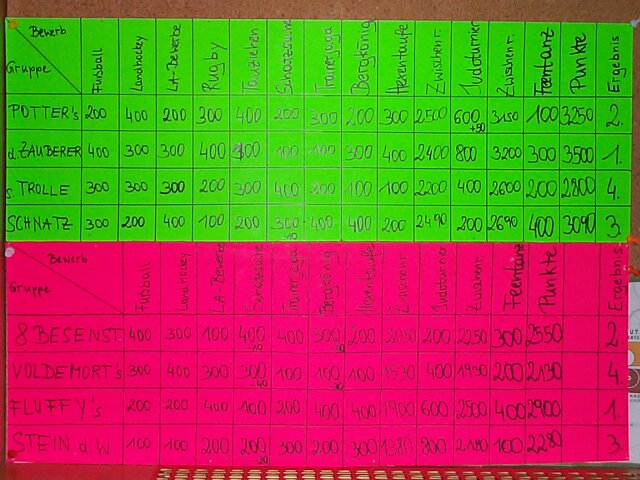 Bewerb Gruppe Fußball Landhockey LA-Bewerbe Rugby Tauziehen Schatzsuche Trainerjaga Bergkönig Hexentaufe Zwischenr. Judoturnier Zwischenr. Feentanz Punkte Ergebnis
POTTER's 200 400 200 300 400 200 300 200 300 2500 600 +50 3150 100 3250 2.
d. ZAUBERER 400 300 300 400 300 100 100 300 400 2400 800 3200 300 3500 1.
s. TROLLE 300 300 300 200 300 400 200 100 100 2200 400 2600 200 2800 4.
SCHNATZ 300 200 400 100 200 300 -10 400 400 200 2490 200 2690 400 3090 3.
Bewerb Gruppe Fußball Landhockey LA Bewerbe Schatzsuche Bergkönig Hexentaufe Zwischenr. Judoturnier Zwischenr. Feentanz Punkte Ergebnis
8 BESENST. 400 300 100 400 400 300 200 2050 200 2250 300 2550 2.
VOLDEMORT's 300 400 300 300 100 100 100 1530 400 1930 200 2130 4.
FLUFFY's 200 200 400 100 200 400 400 1900 600 2500 400 2900 1.
STEIN. d W 100 100 200 200 300 200 300 1380 800 2180 100 2280 3.